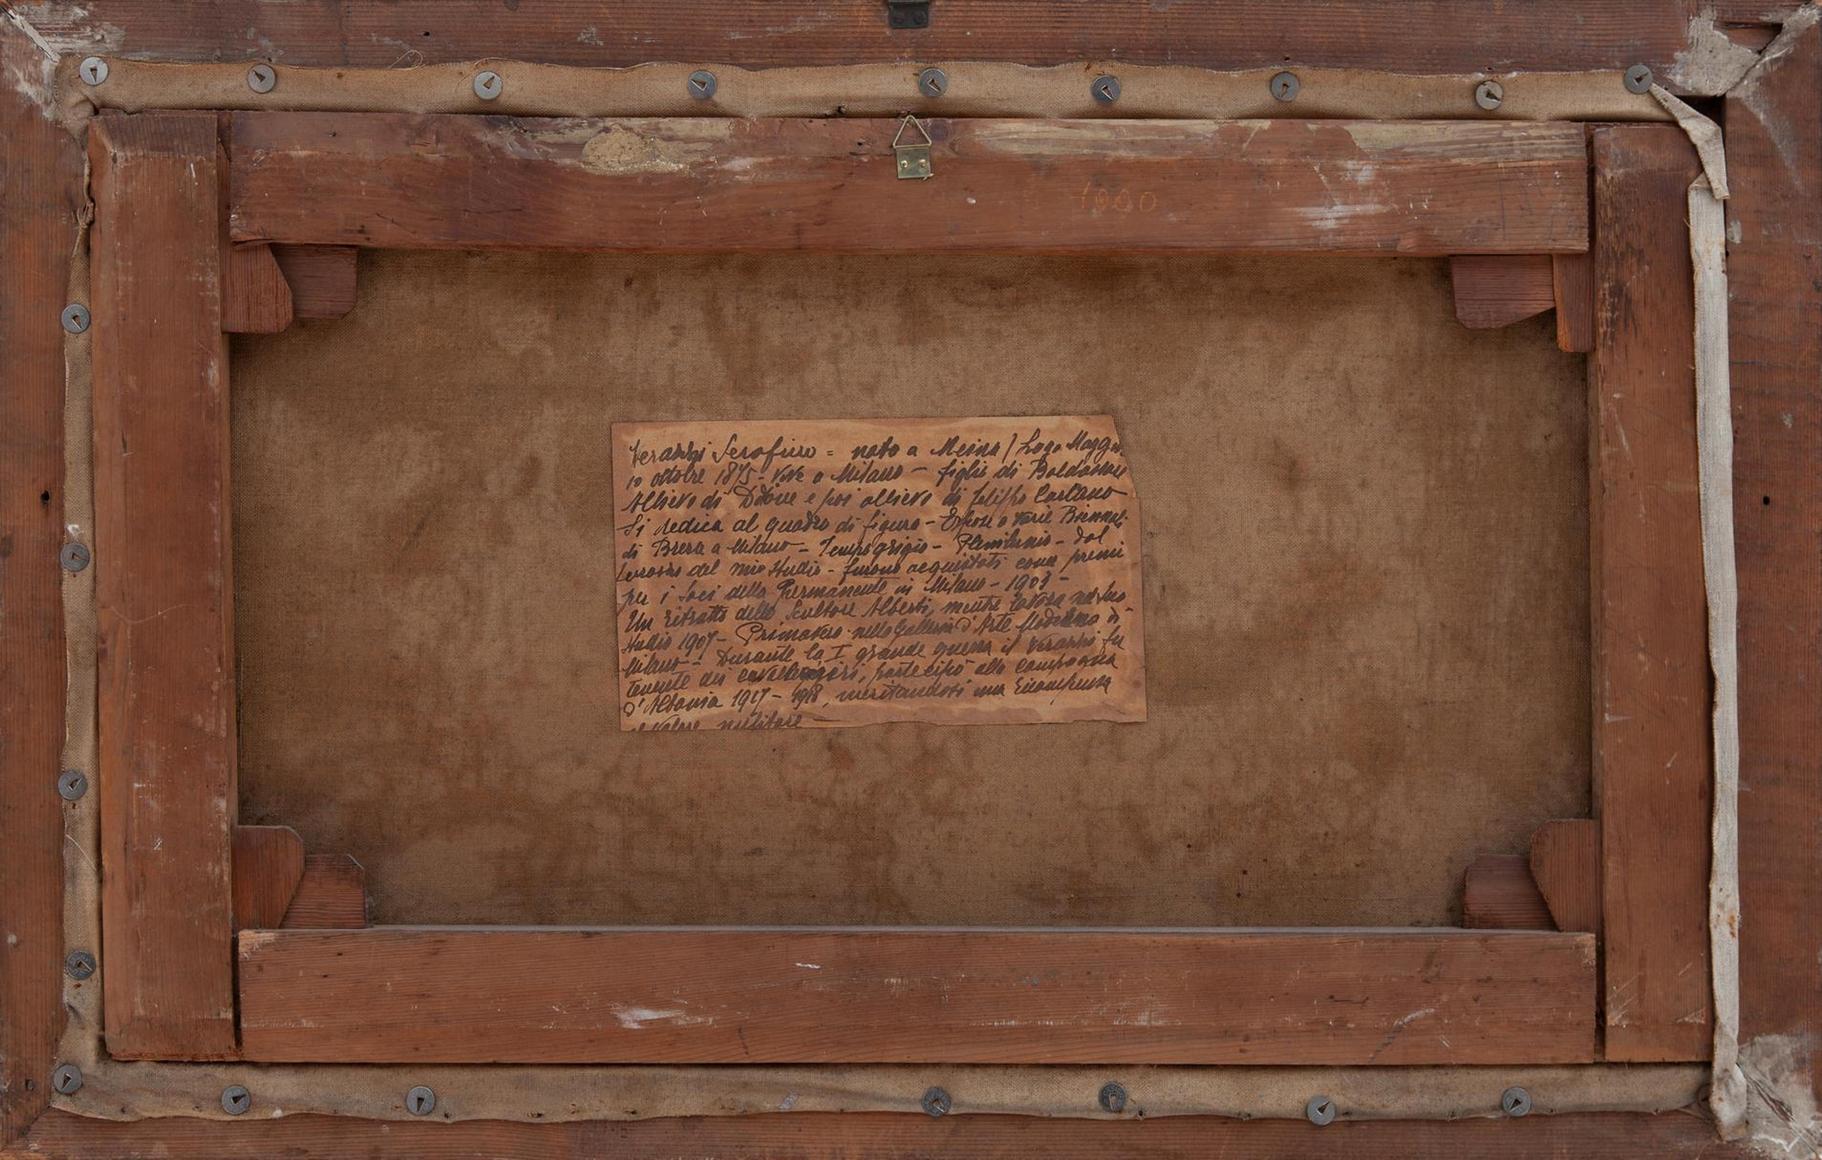 1900
Verazzi Serafino = nato a Meina / Lago Magg.
10 ottobre 1875 - Vive a Milano - figlio di Baldassare
Allievo di e poi allievo di Filippo Carcano
Si dedica al quadro di figura - Espose a varie Biennali
di Brera a Milano - Tempo grigio - Plenilunio - dal
terrazzo del mio studio - furono acquistati come premi
per i Soci della Permanente in Milano - 1903 -
Un ritratto dello Scultore Alberti, mentre lavora nel suo
studio 1907 - Primavera nella Galleria d'Arte Moderna di
Milano - Durante la I grande guerra il Verazzi fu
tenente dei cavalleggeri, partecipò alla campagna
d'Albania 1917 - 1918, meritandosi una ricompensa
al valore militare -